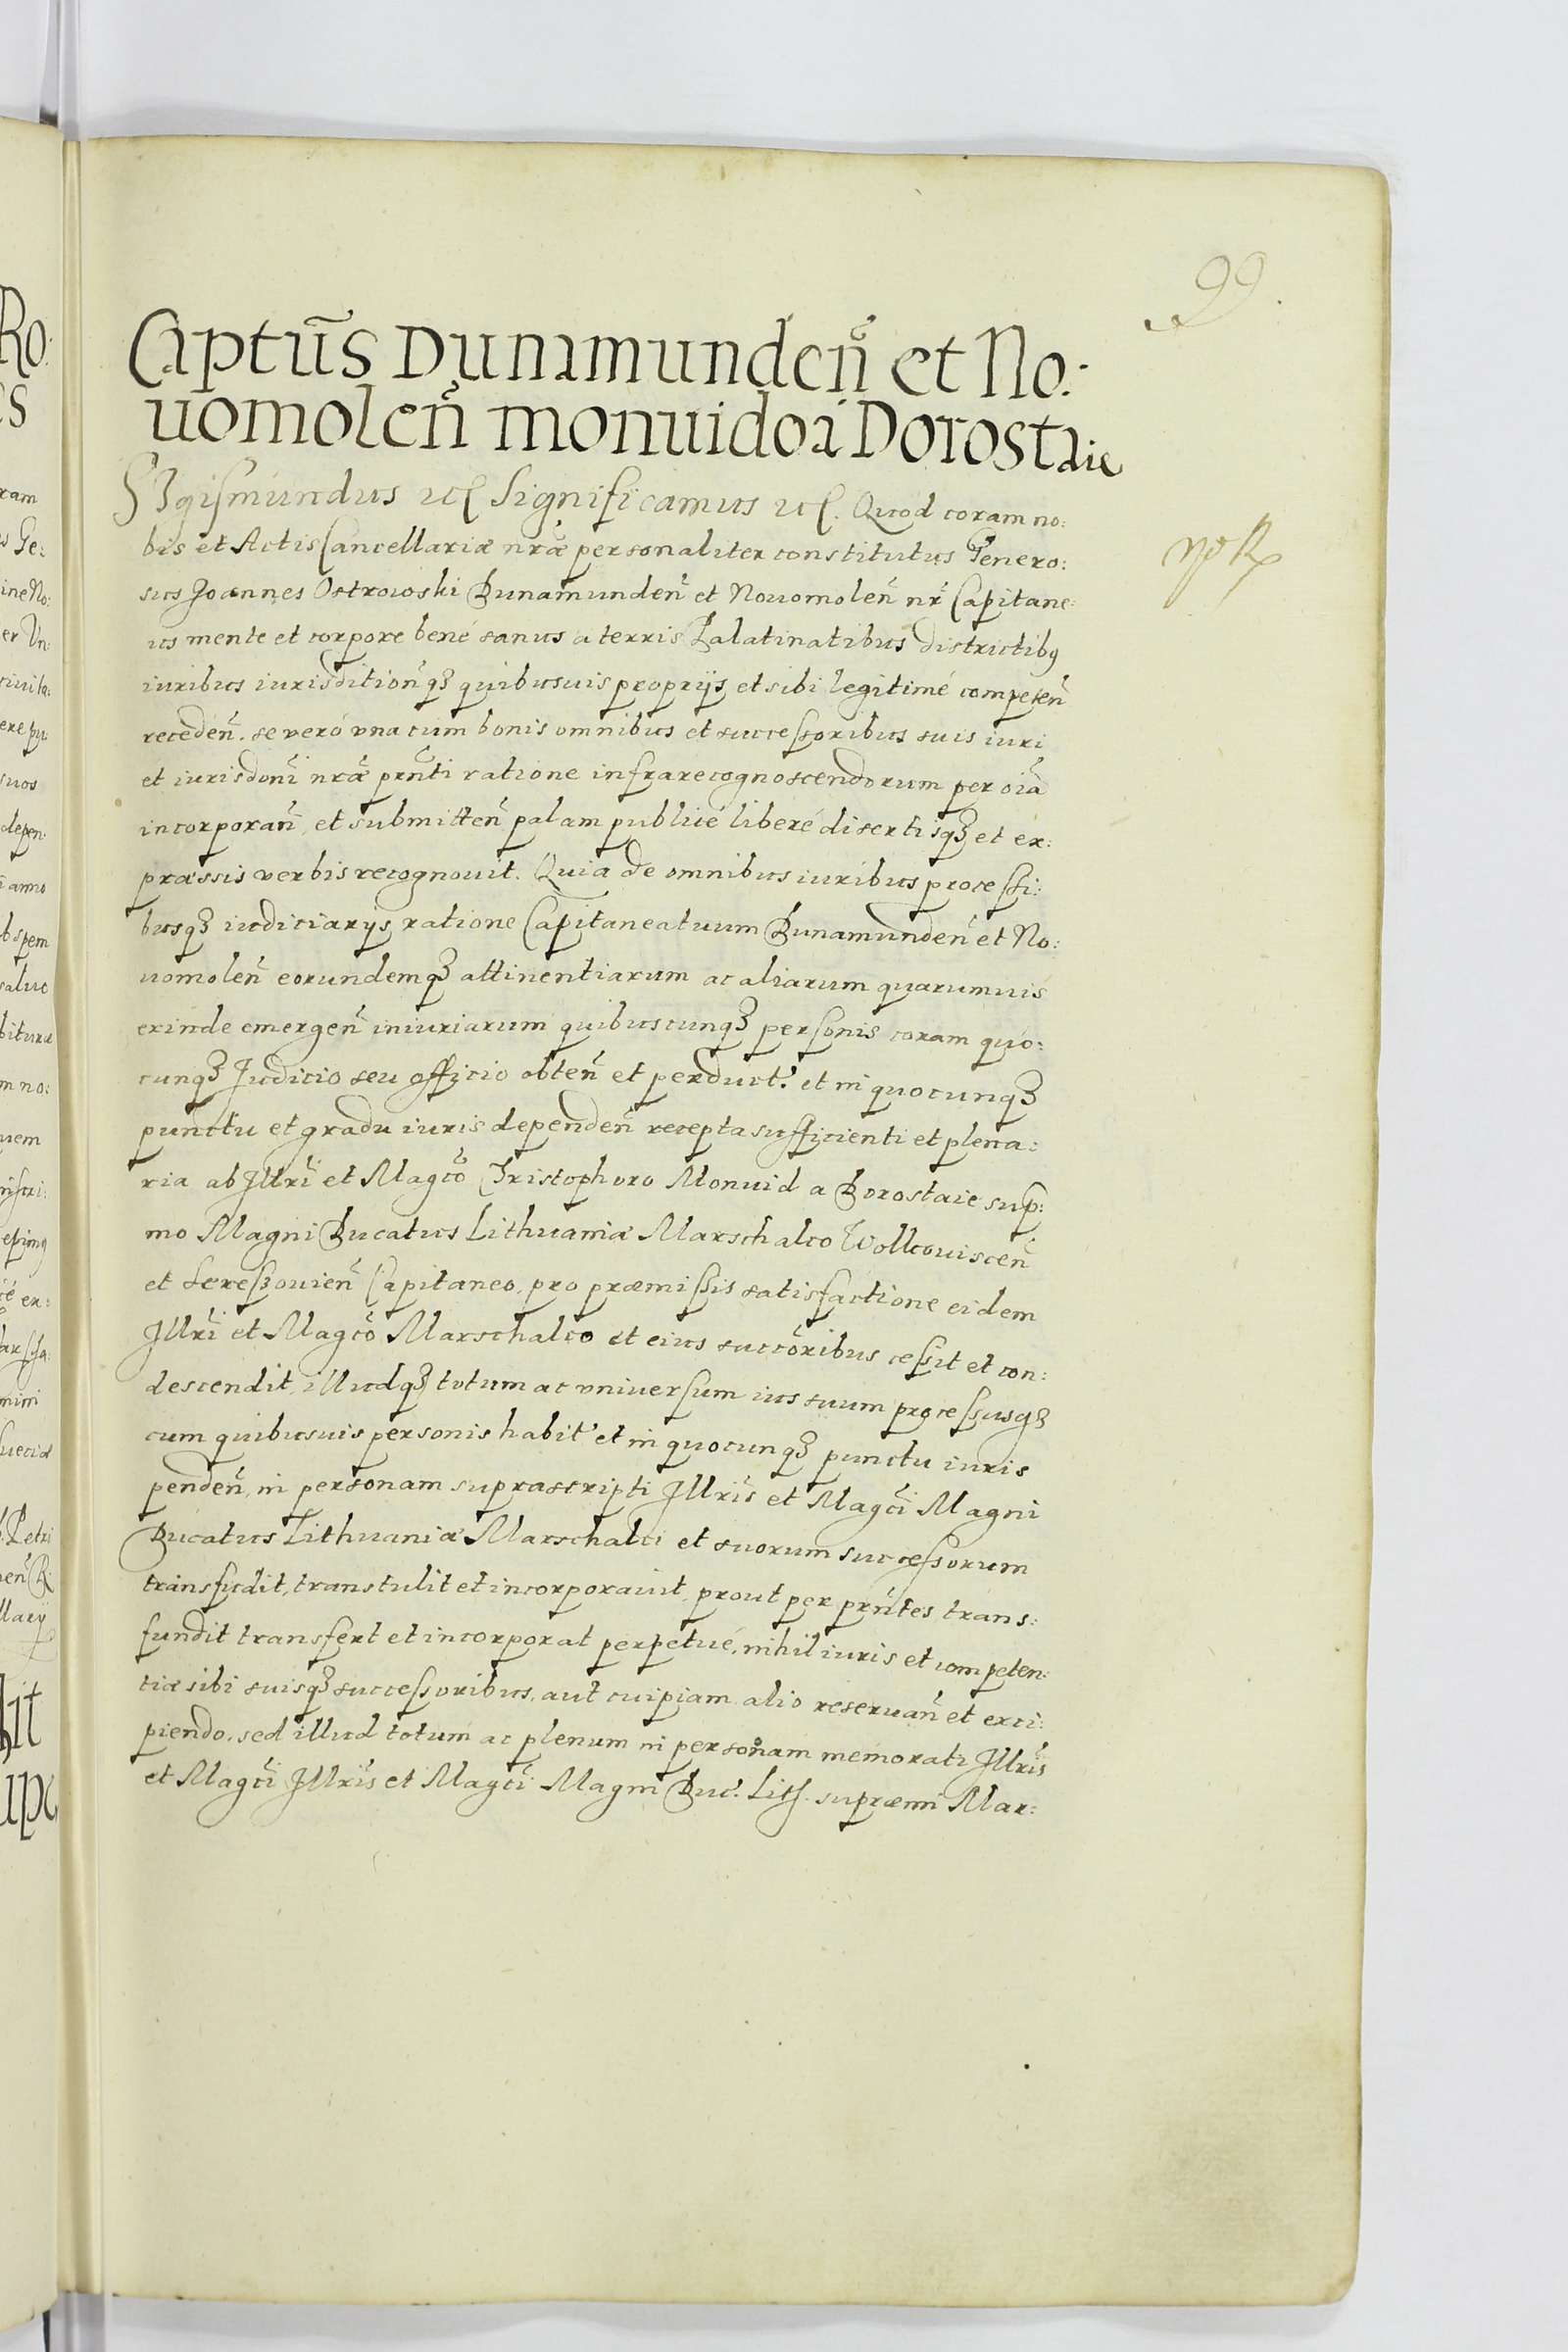 99.
Captūs Dunamunden̄ et No:
uomolen̄ monuido a Dorostaie
SIgismundus ꝛc̃ Significamus ꝛc̃. Quod coram no:
bis et Actis Cancellariæ nrǣ personaliter constitutus Genero:
sus Joannes Ostrowski Dunamunden̄ et Nouomolen̄ nr̄ Capitane:
us mente et corpore bené sanus a terris Palatinatibus districtibꝰ
iuribus iurisdition̄qꝫ quibusuis proprijs et sibi legitimé competen̄
receden̄. se veró vna cum bonis omnibus et successoribus suis iuri
et iurisdoni̇̄ nrǣ prn̄ti ratione infra recognoscendorum per oiā
incorporan̄, et submitten̄ palam publicé liberé disertisqꝫ et ex:
præssis verbis recognouit. Quia de omnibus iuribus processi:
busqꝫ iudiciarijs ratione Capitaneatuum Dunamunden̄ et No:
uomolen̄ eorundemqꝫ attinentiarum ac aliarum quarumuis
exinde emergen̄ iniuriarum quibuscunqꝫ personis coram quo:
cunqꝫ Judicio seu officio obten̄ et perduct̓. et in quocunqꝫ
punctu et gradu iuris dependen̄ recepta sufficienti et plena:
ria ab Jllrī et Magcō Christophoro Monuid a Dorostaie sup̄:
mo Magni Ducatus Lithuaniæ Marschalco Wolkouiscen̄
et Sereszouien̄ Capitaneo. pro præmissis satisfactione eidem
Jllrī et Magcō Marschalco et eius succōribus cessit et con:
descendit, illudqꝫ totum ac vniuersum ius suum processusqꝫ
cum quibusuis personis habit̓ et in quocunqꝫ punctu iuris
penden̄, in personam suprascripti Jllrīs et Magcī Magni
Ducatus Lithuaniæ Marschalci et suorum successorum
transfudit, transtulit et incorporauit, prout per prn̄tes trans:
fundit transfert et incorporat perpetué, nihil iuris et competen:
tiæ sibi suisqꝫ successoribus, aut cuipiam alio reseruan̄ et exci:
piendo. sed illud totum ac plenum in personam memorati Jllrīs
et Magcī Jllrīs et Magcī Magni Duc̓. Lith. supræmi Mar: